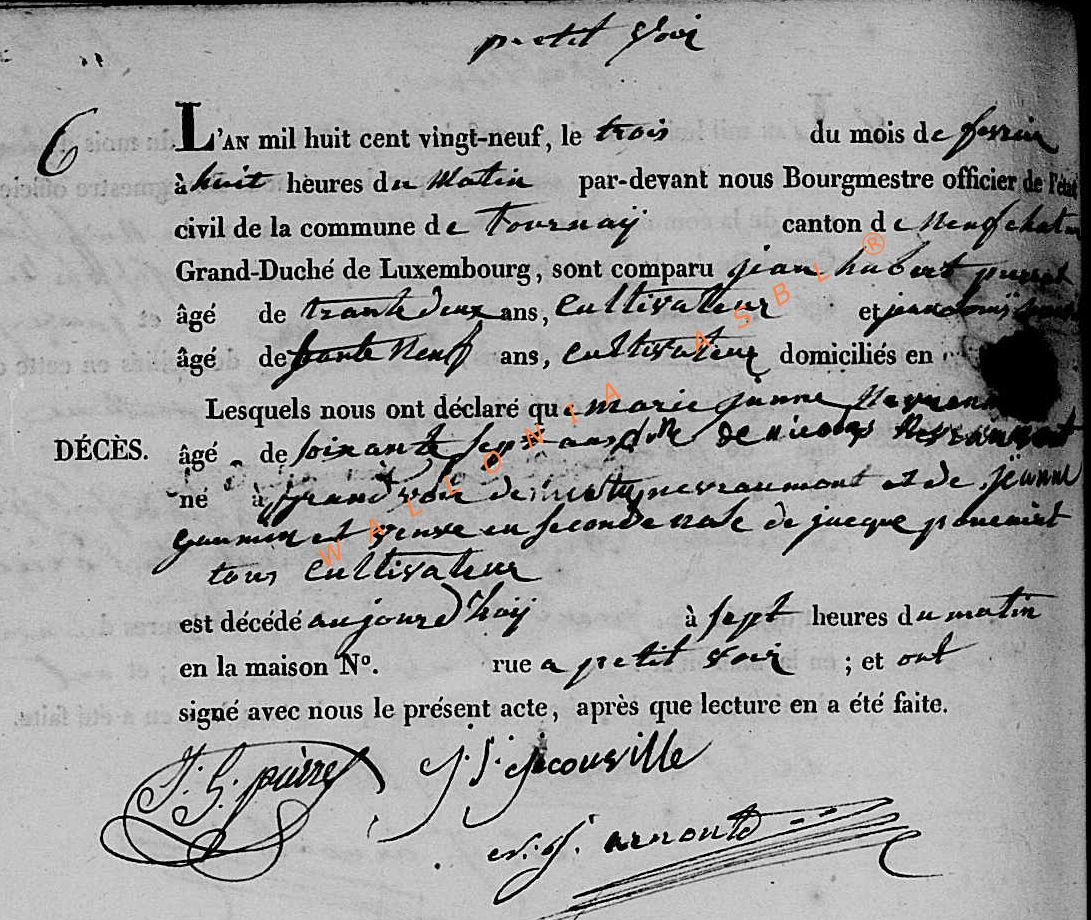 petit voir
6
L'AN mil huit cent vingt-neuf, le trois du mois de fevrier
à huit heures du Matin par-devant nous Bourgmestre officier de l'état
civil de la commune de Tournay canton de Neufchateau
Grand-Duché de Luxembourg, sont comparu jean hubert
âgé de trante deux ans, Cultivateur et
âgé de Neuf ans, Cultivateur domiciliés en
Lesquels nous ont déclaré que marie janne
DÉCÈS. âgé de soixante sept ans fille de nicolas
né à grand voir de nevraumont et de jéanne
et veuve en seconde de jacque
tous Cultivateur
est décédé aujourd'huij à sept heures du matin
en la maison No. rue a petit voir ; et ont
signé avec nous le présent acte, après que lecture en a été faite.
J: h: pierre J: j: jacouville
arnould
WALLONIA ASBL ®